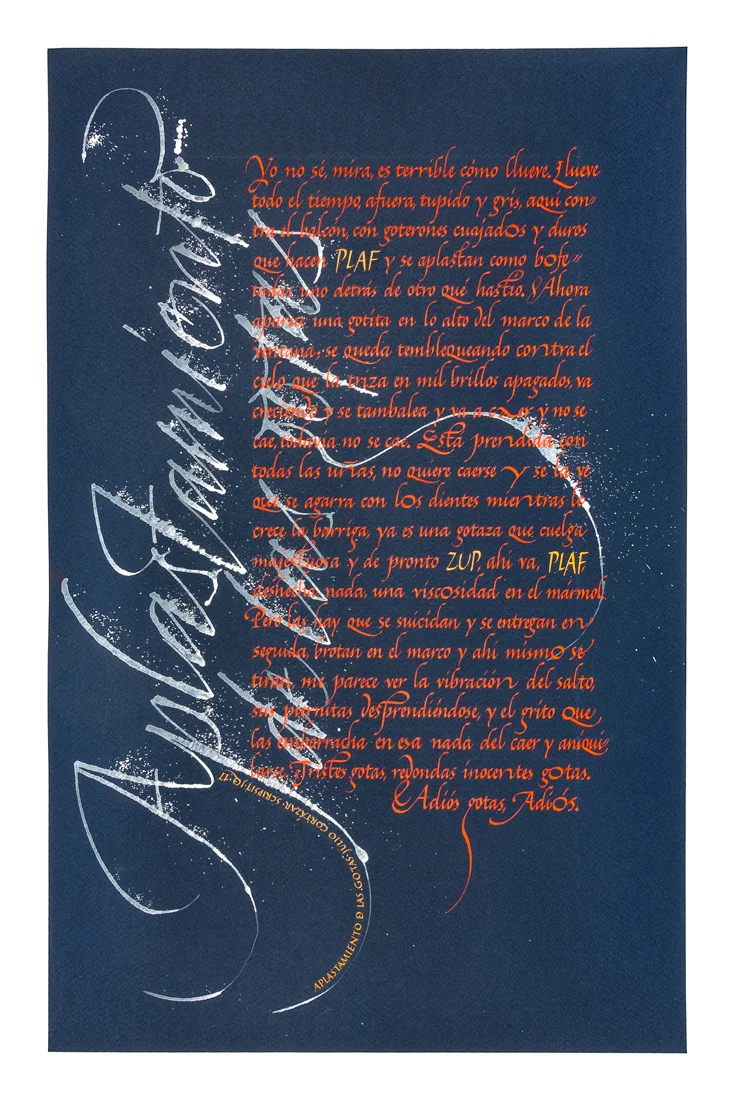 Aplastamiento
de las gotas
Yo no sé, mira, es terrible cómo llueve. Llueve
todo el tiempo, afuera, tupido y gris, aquí con-
tra el balcón, con goterones cuajados y duros
que hacen PLAF y se aplastan como bofe=
tadas uno detrás de otro qué hastío. Ahora
aparece una gotita en lo alto del marco de la
ventana, se queda temblequeando contra el
cielo que la triza en mil brillos apagados, va
creciendo y se tambalea y va a caer y no se
cae, todavía no se cae. Está prendida con
todas las uñas, no quiere caerse y se la ve
que se agarra con los dientes mientras le
crece la barriga, ya es una gotaza que cuelga
majestuosa y de pronto ZUP, ahí va, PLAF
deshecha, nada, una viscosidad en el mármol.
Pero las hay que se suicidan y se entregan en
seguida, brotan en el marco y ahí mismo se
tiran, me parece ver la vibración del salto,
sus piernitas desprendiéndose, y el grito que
las emborracha en esa nada del caer y aniqui-
larse. Tristes gotas, redondas inocentes gotas.
Adiós gotas, Adiós.
APLASTAMIENTO D LAS GOTAS·JULIO CORTÁZAR·SCRIPSIT J.Q.·17